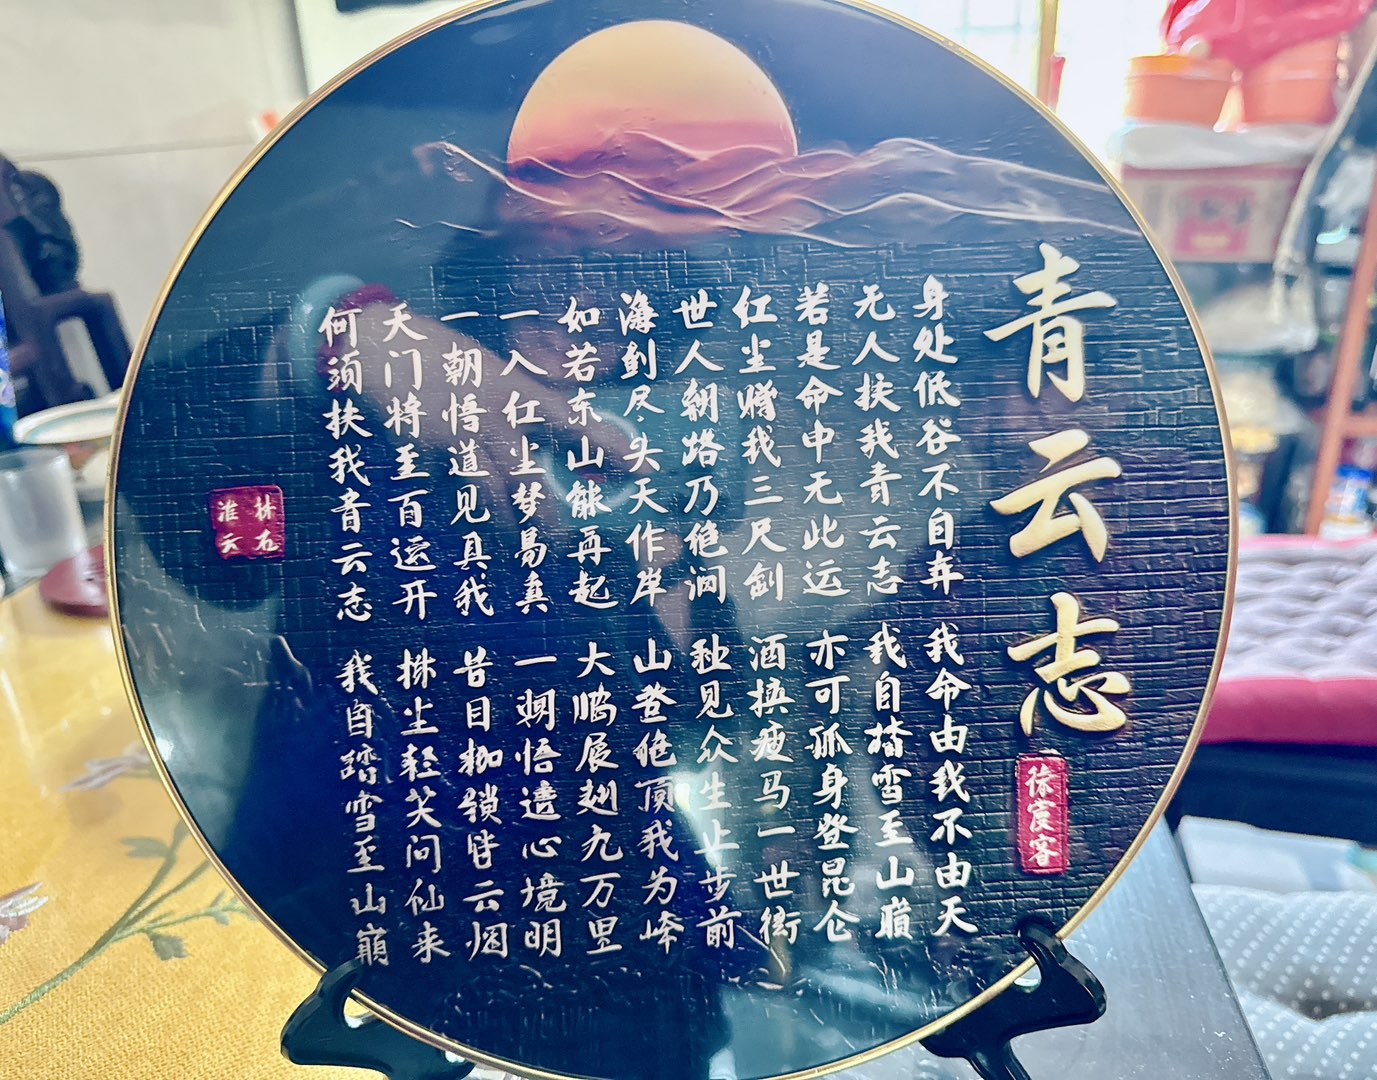 青云志
徐宸客
身处低谷不自弃 我命由我不由天
无人扶我青云志 我自踏雪至山巅
若是命中无此运 亦可孤身登昆仑
红尘赠我三尺剑 酒换瘦马一世街
世人翻路乃绝涧 独见众生止步前
海到尽头天作岸 山登绝顶我为峰
如若东山能再起 大鹏展翅九万里
一入红尘梦易真 一朝悟透心境明
一朝悟道见真我 昔日枷锁皆云烟
天门将至百运开 拂尘轻笑问仙来
何须扶我青云志 我自踏雪至山巅